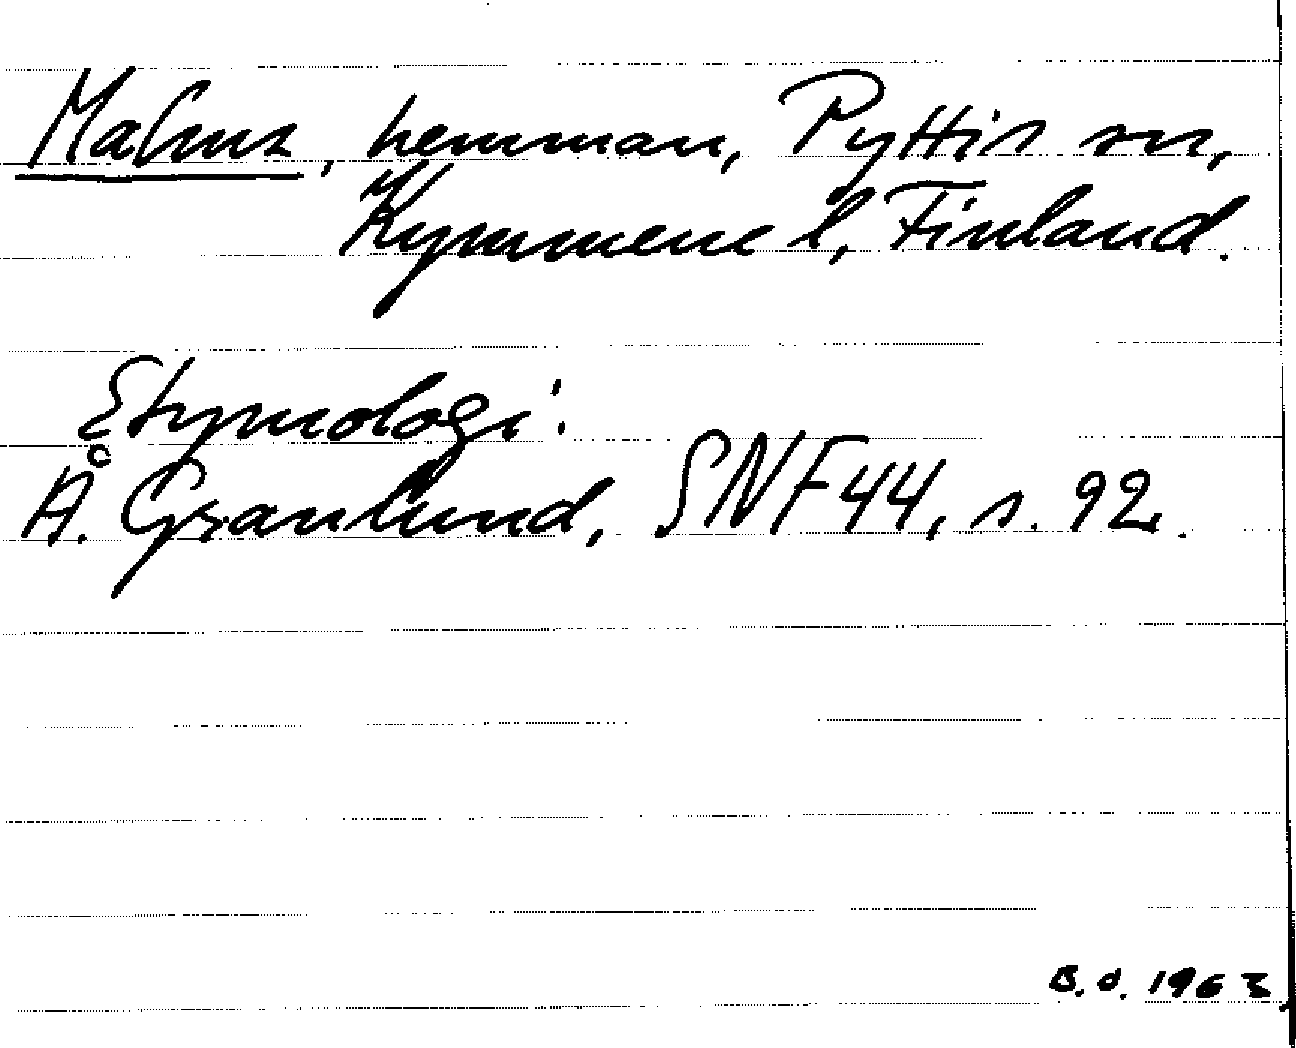 Malms, hemman, Pyttis sn,
Kymmene l, Finland.
Etymologi:
Å. Granlund, SNF 44, s. 92.
B. d. 1963